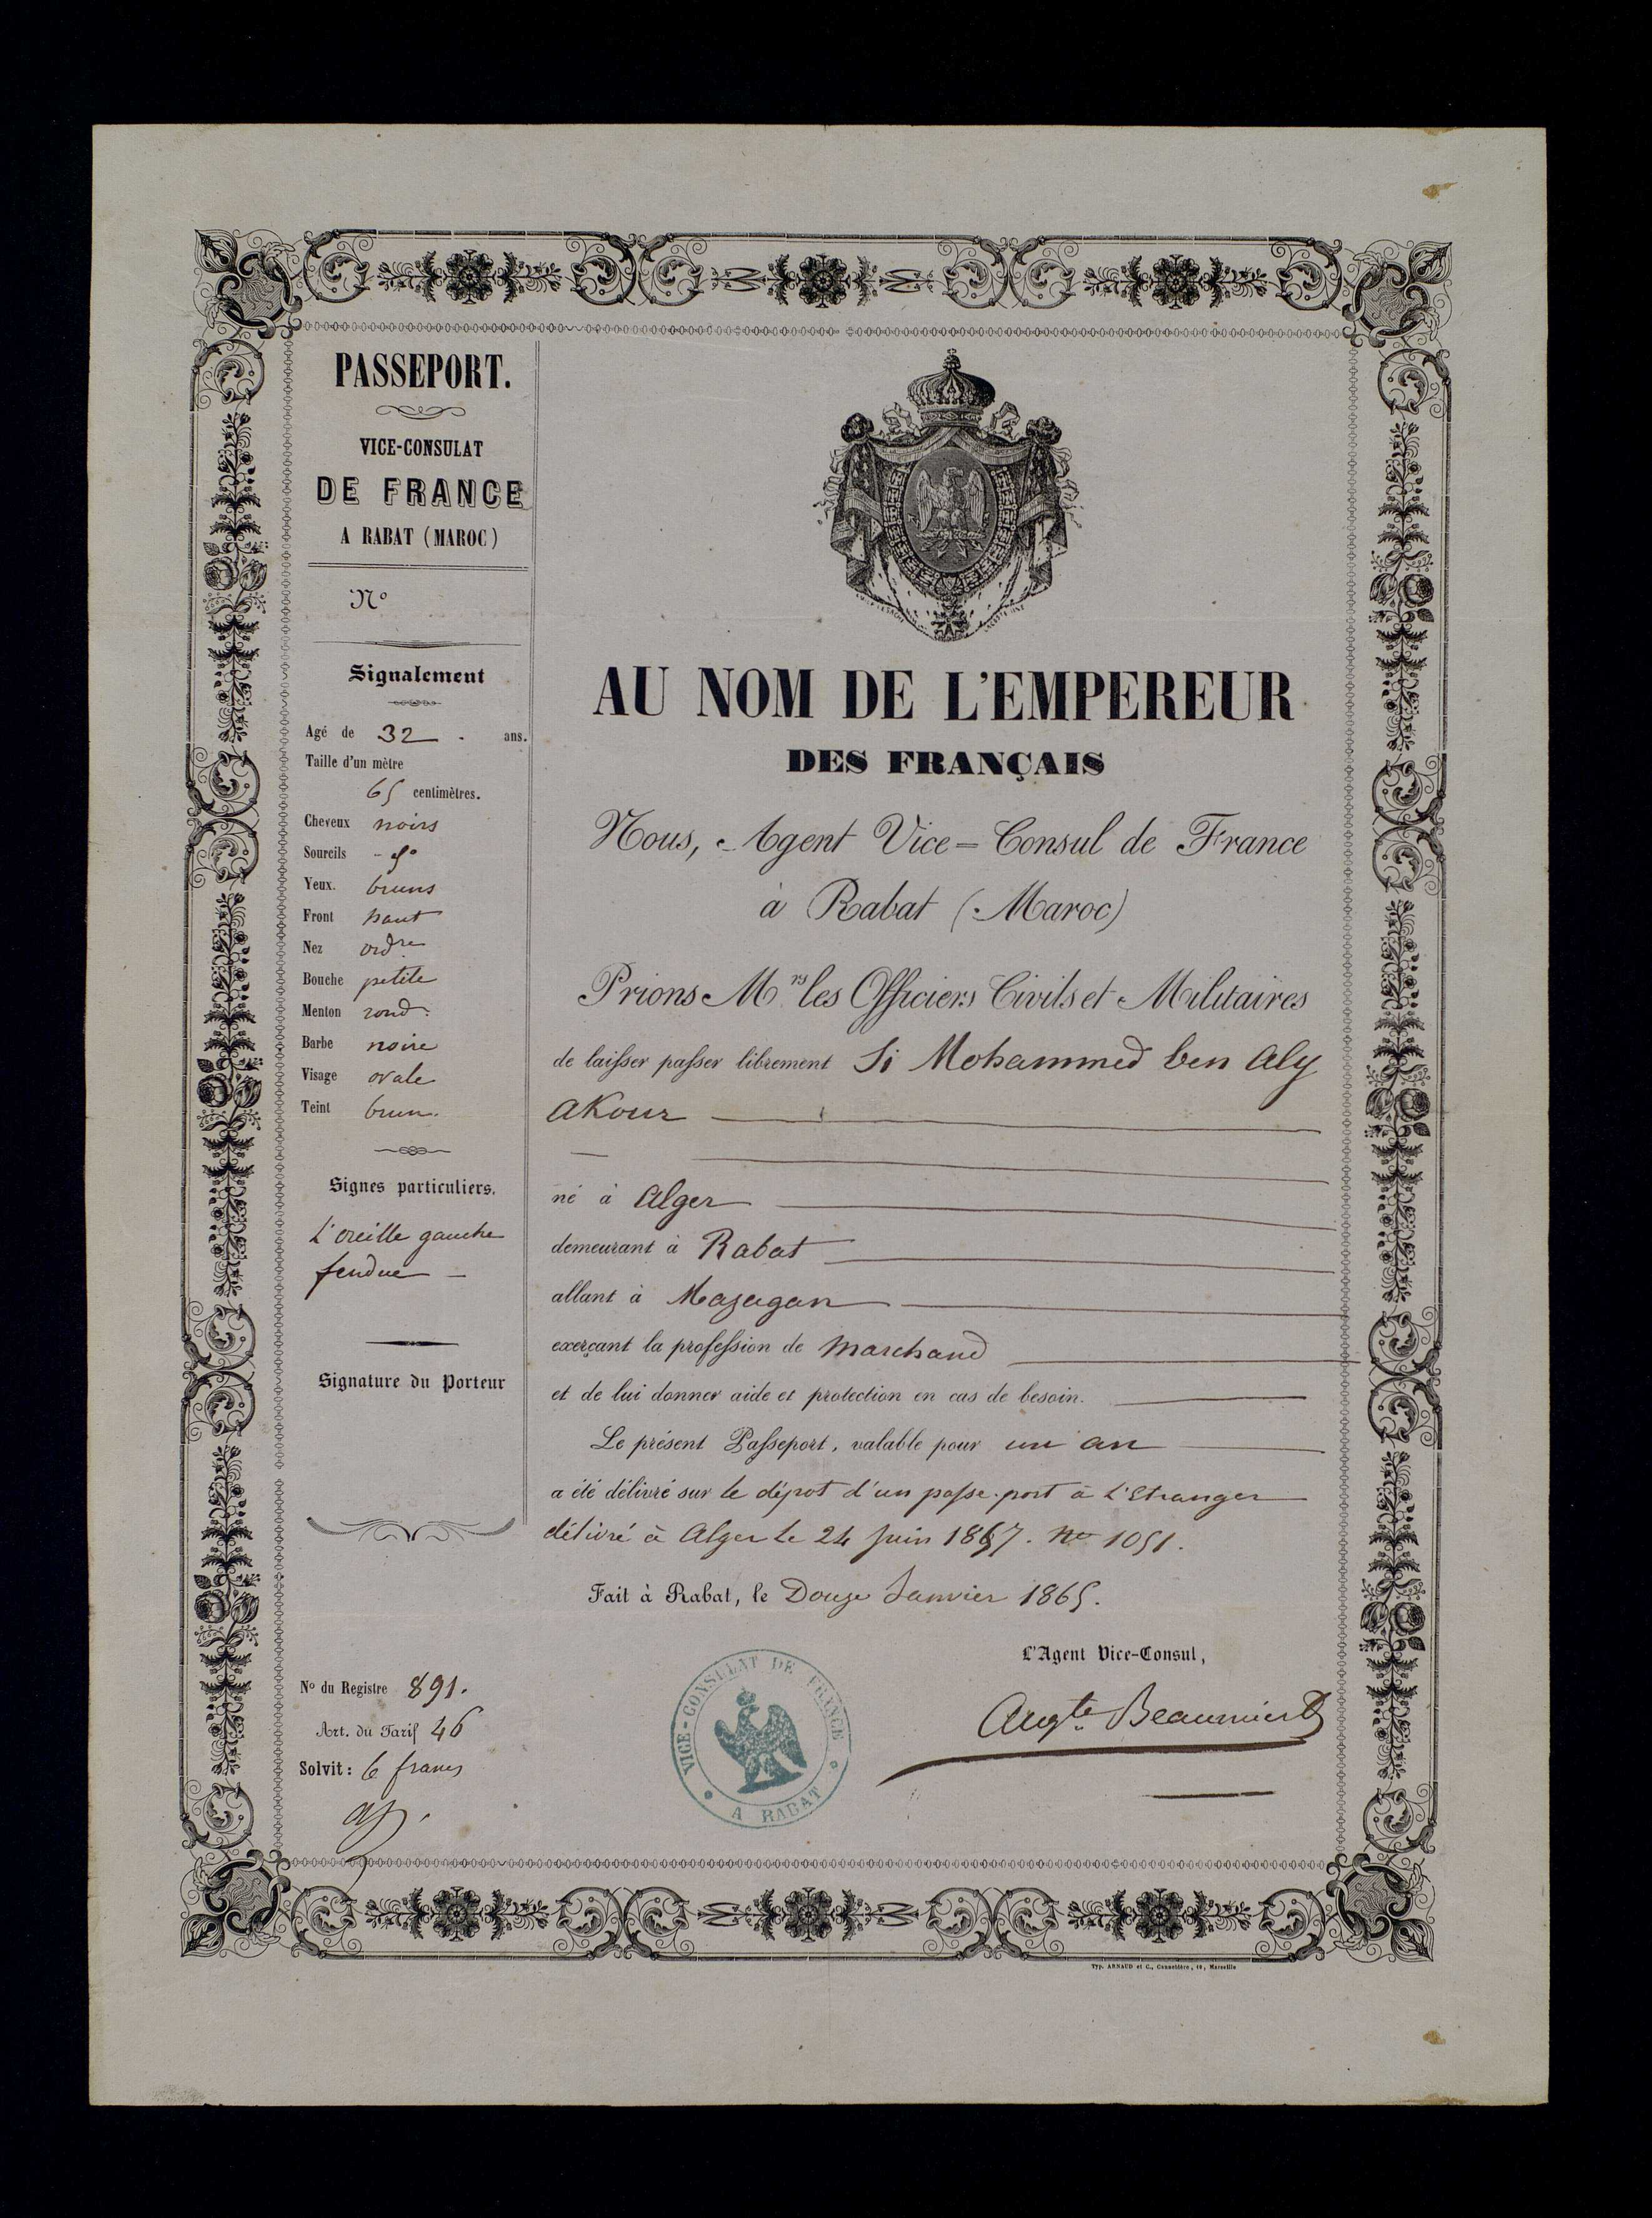 PASSEPORT.
VICE-CONSULAT
DE FRANCE
A RABAT (MAROC)
N°
Signalement
Agé de 32 ans.
Taille d'un mètre
65 centimètres.
Cheveux noirs
Sourcils - d°
Yeux. bruns
Front haut
Nez ordre
Bouche petite
Menton rond.
Barbe noire
Visage ovale
Teint brun.
Signes particuliers.
L'oreille gauche
fendue —
Signature du Porteur
N° du Registre 891.
Art. du Tarif 46
Solvit : 6 francs
AU NOM DE L'EMPEREUR
DES FRANÇAIS
Nous, Agent Vice-Consul de France
à Rabat (Maroc)
Prions M.rs les Officiers Civils et Militaires
de laisser passer librement Si Mohammed ben Aly
Akour
né à Alger
demeurant à Rabat
allant à Mazagan
exerçant la profession de Marchand
et de lui donner aide et protection en cas de besoin.
Le présent Passeport, valable pour un an
a été délivré sur le dépot d'un passe-port à l'Etranger
délivré à Alger le 24 Juin 1857. No 1051.
Fait à Rabat, le Douze Janvier 1865.
L'Agent Vice-Consul,
Augte Beaumier
VICE-CONSULAT DE FRANCE
A RABAT
Typ. ARNAUD et C., Cannebière, 10, Marseille